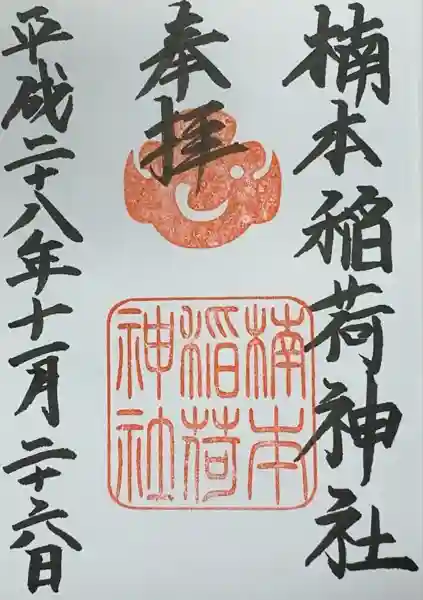 楠本稲荷神社
奉拝
楠本
稲荷
神社
平成二十八年十一月二十六日